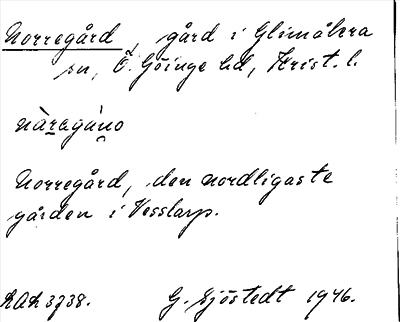 Norregård, gård i Glimåkra
sn, Ö. Göinge hd, Krist. l.
nàragáno
Norregård, den nordligaste
gården i Vesslarp.
G. Sjöstedt 1946.